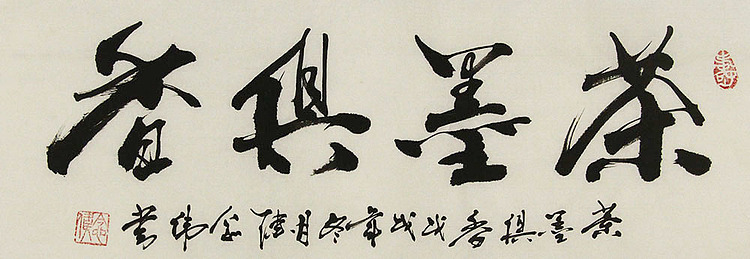 茶墨俱香
茶墨俱香戊戌年冬月